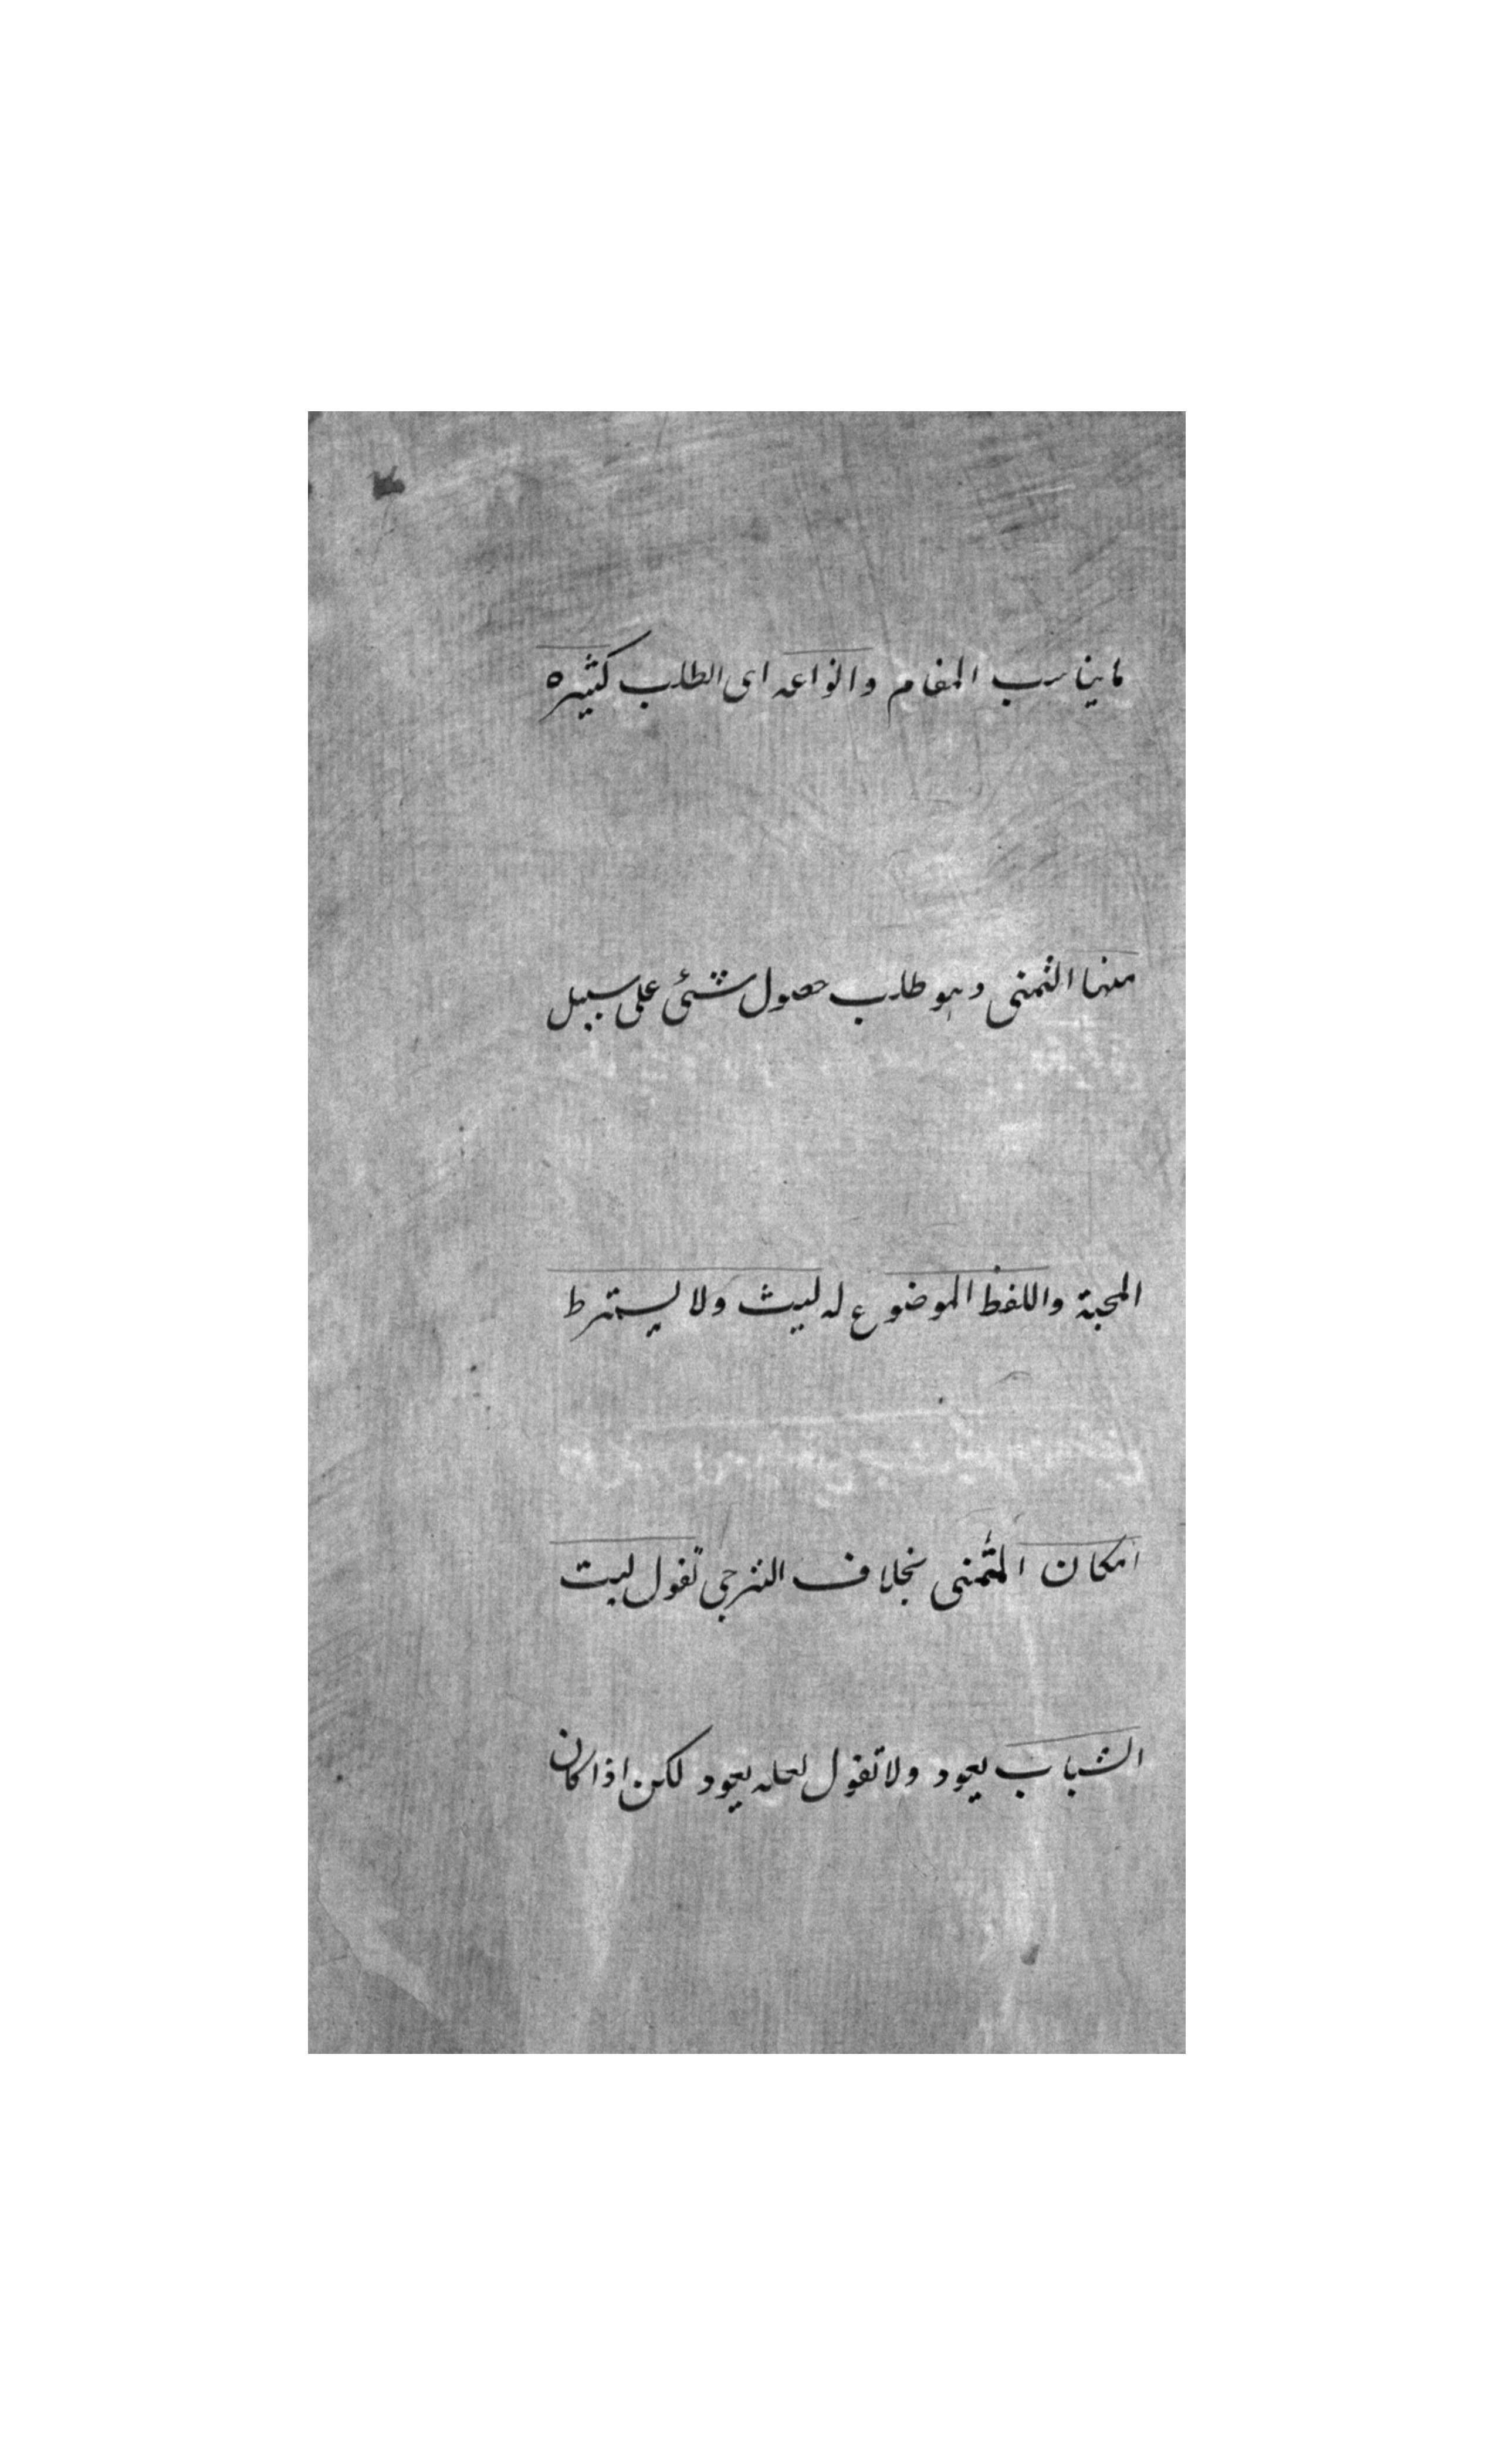 ما يناسب المقام وانواعه اى الطلب كثيره
منها التمنى وهو طلب حصول شئى على سبيل
المحبة واللفظ الموضوع له ليت ولا يشترط
امكان المتمنى بخلاف الترجى تقول ليت
الشباب يعود ولا تقول لعله يعود لكن اذا كان